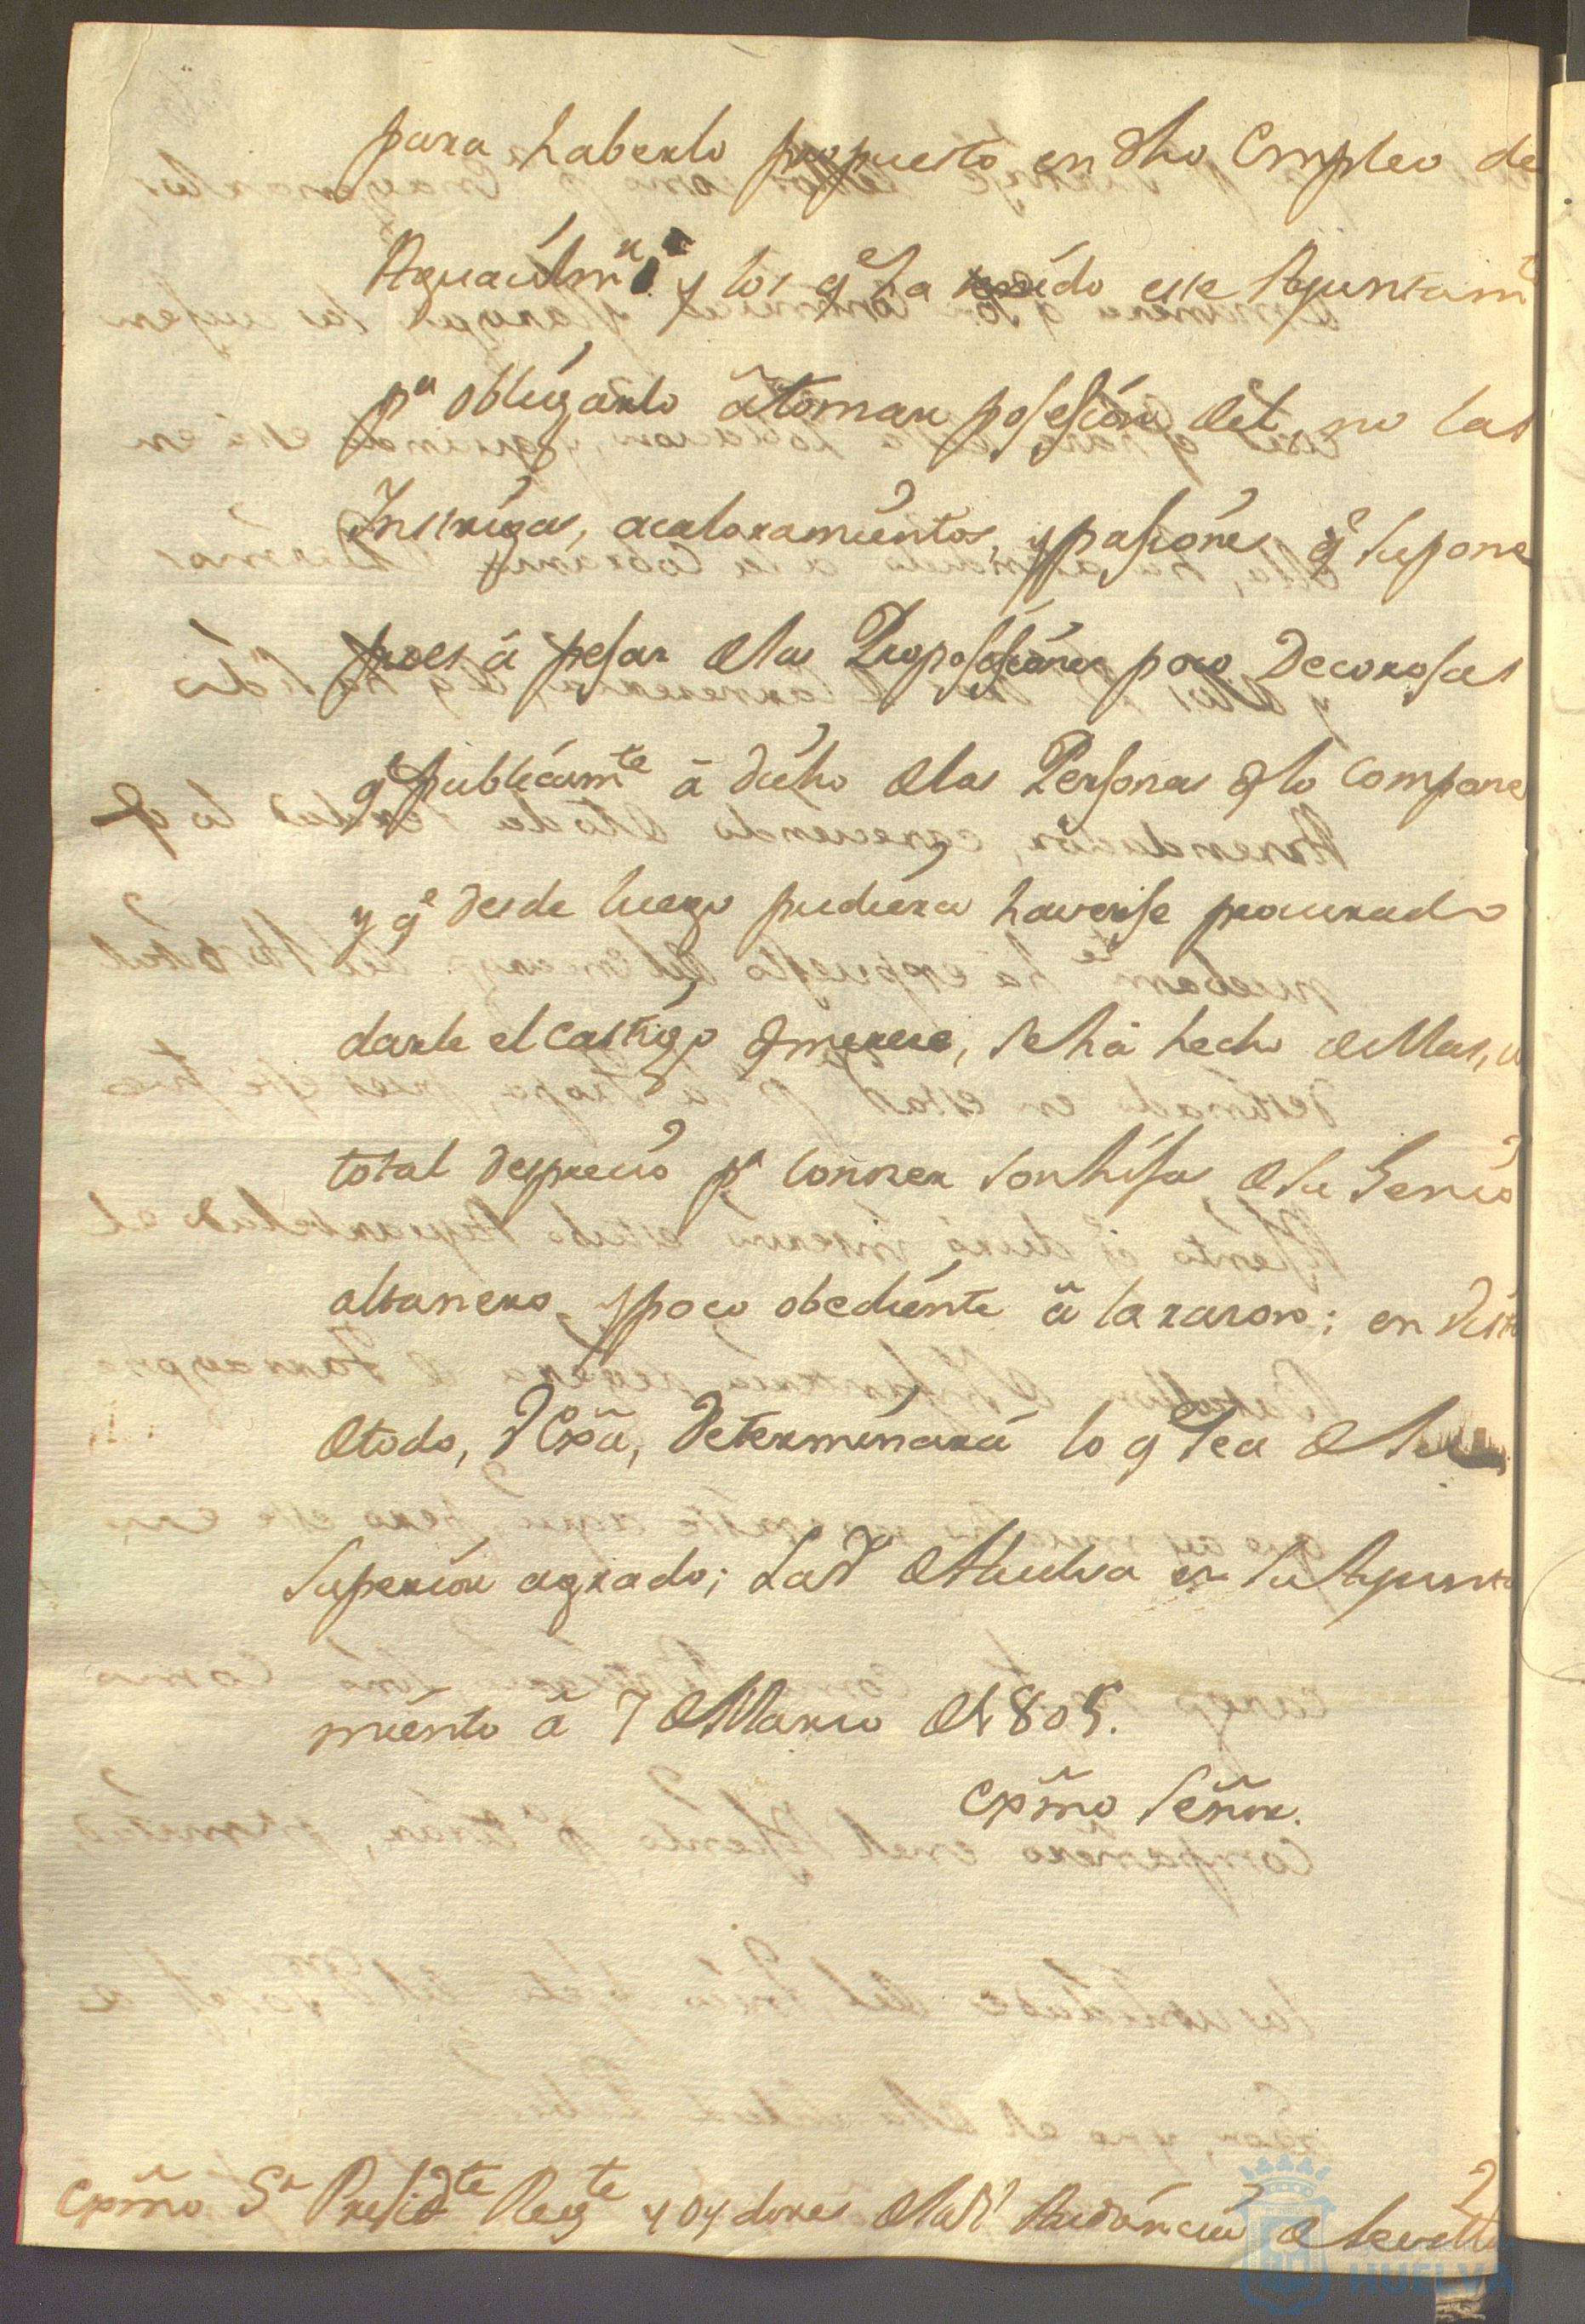 para haberlo propuesto en dho Empleo de
Alguacil mr y los qe ha tenido este Ayuntamto
pa obligarlo â tomar posesión del, no las
Intrigas, acaloramientos, y pasiones qe supone
pues â pesar de las Proposisiones poco Decorosas
qe publicamte â dicho de las Personas q lo compone
y qe desde luego pudiera haverse procurado
darle el castigo q merese, se hâ hecho de ellas, u
total desprecio pa conoser son hijas de su Genio
altanero y poco obediente â la rason; en vista
de todo, V Exâ, Determinará lo q sea de su
superior agrado; La Va de Huelva en su Ayunta
miento â 7 de Marzo de 1805.
Exmo Señor.
Exmo Sr Presidte Regte y Oydores de la Rl Audiencia de Sevilla
HUELVA